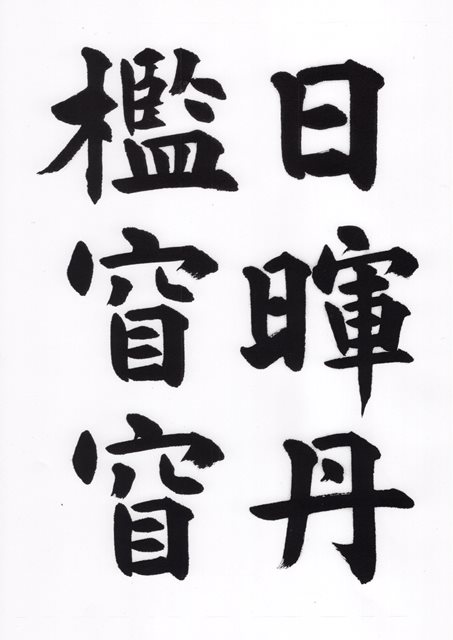 日暉丹
檻窅窅